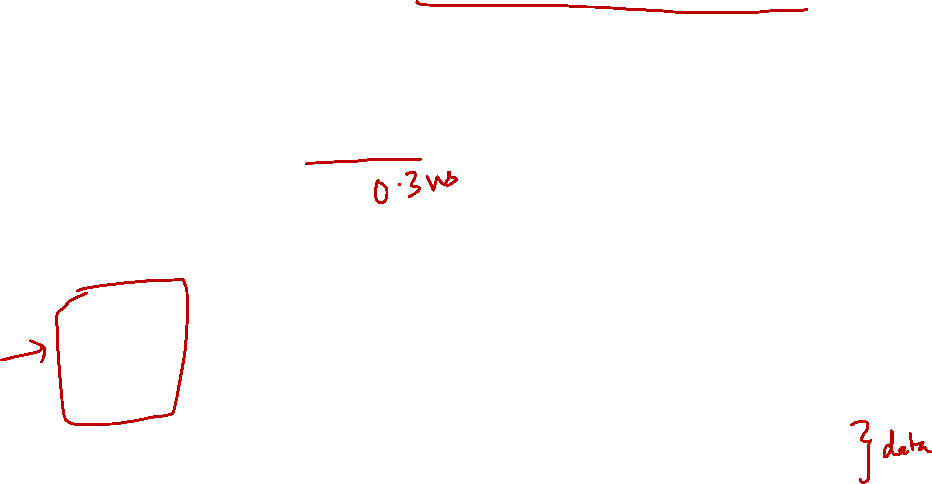 0.3ns
data